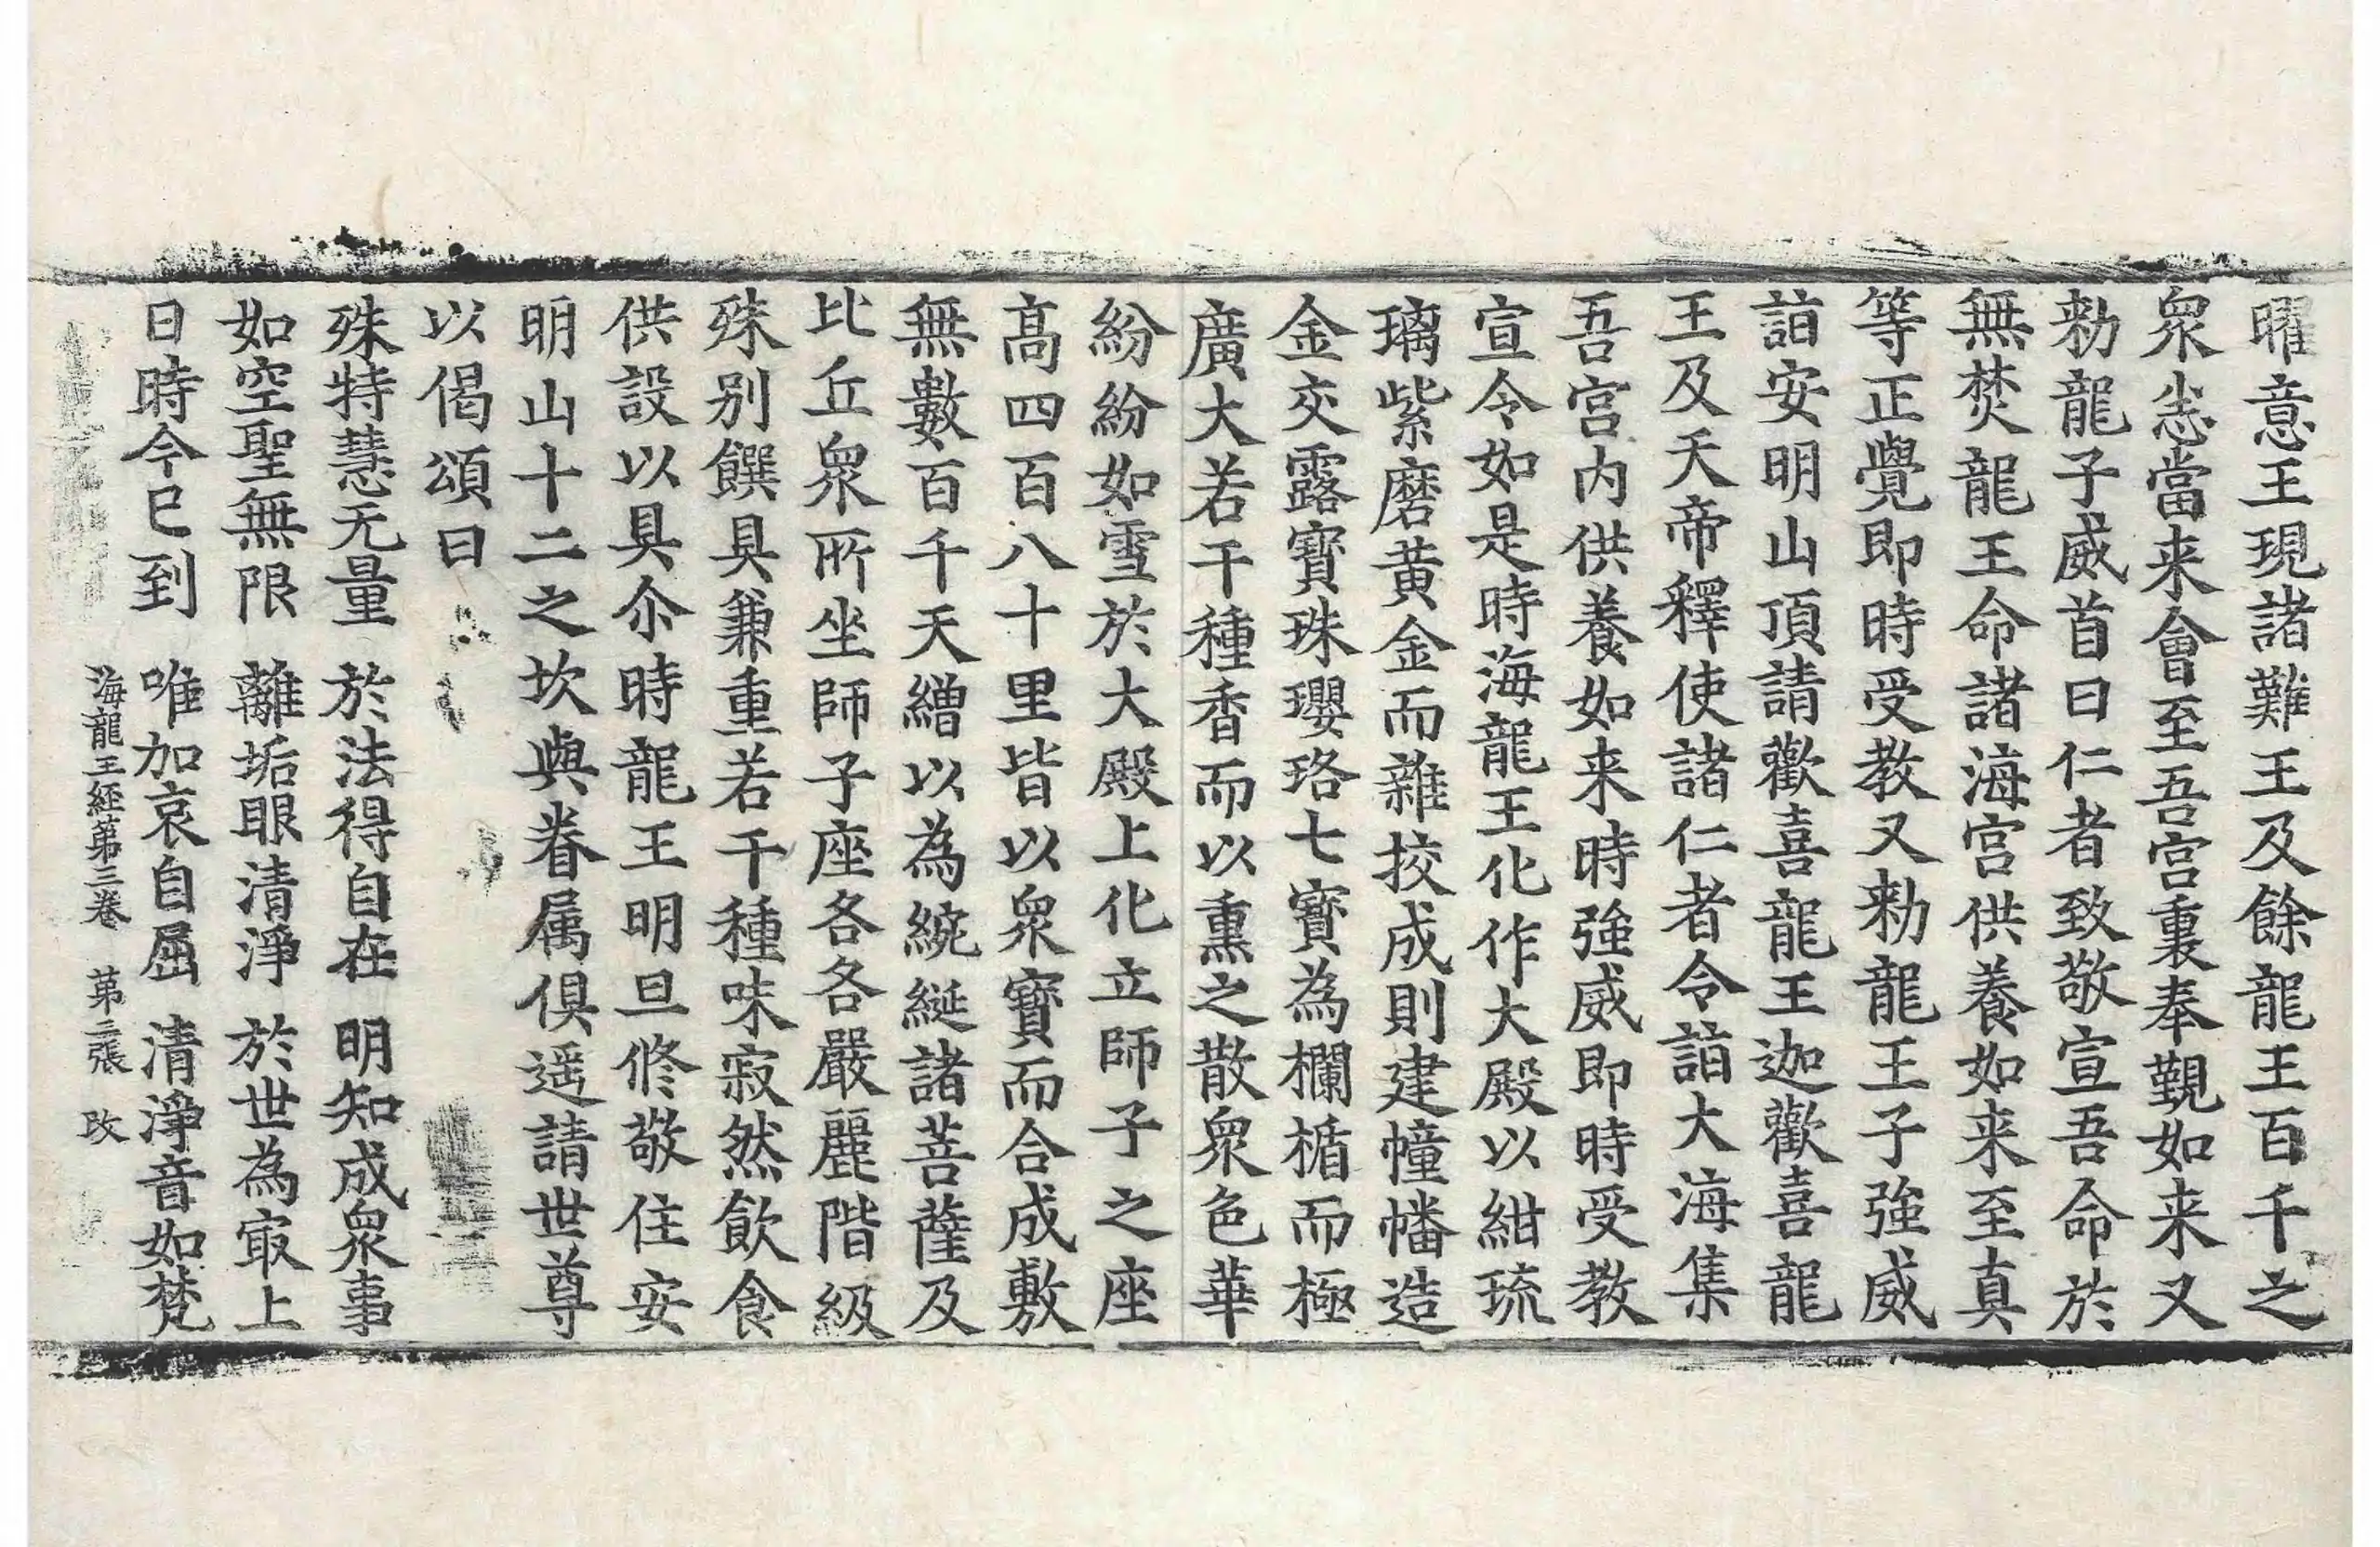 曜意王現諸難王及餘龍王百千之
衆悉當来會至吾宮裏奉覲如来又
勑龍子威首曰仁者致敬宣吾命於
無焚龍王命諸海宮供養如来至真
等正覺即時受教又勑龍王子強威
詣安明山頂請歡喜龍王迦歡喜龍
王及天帝釋使諸仁者令詣大海集
吾宮内供養如来時強威即時受教
宣令如是時海龍王化作大殿以紺琉
璃紫磨黃金而雜挍成則建幢幡造
金交露寶珠瓔珞七寶為欄楯而極
廣大若干種香而以熏之散衆色華
紛紛如雪於大殿上化立師子之座
髙四百八十里皆以衆寶而合成敷
無數百千天繒以為綩綖諸菩薩及
比丘衆所坐師子座各各嚴麗階級
殊别饌具兼重若干種味寂然飲食
供設以具尒時龍王明旦修敬住安
明山十二之坎與眷属俱遥請世尊
以偈頌曰
殊特慧无量　於法得自在　明知成衆事
如空聖無限　離垢眼清淨　於世為冣上
日時今已到　唯加哀自屈　清淨音如梵
海龍王經第三卷　第二張　改